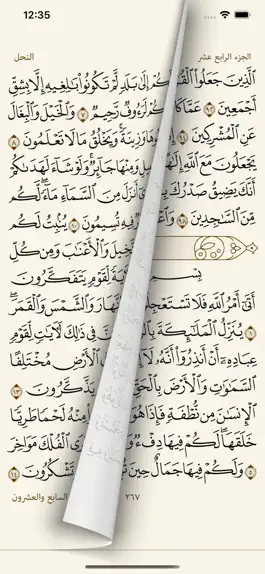 الجزء الرابع عشر
النحل
الَّذِينَ جَعَلُوا الْقُ
كُمْ إِلَىٰ بَلَدٍ لَّمْ تَكُونُوا بَالِغِيهِ إِلَّا بِشِقِّ
أَجْمَعِينَ ٩٢ عَمَّا كَا
كُمْ لَرَءُوفٌ رَّحِيمٌ ٧ وَالْخَيْلَ وَالْبِغَالَ
عَنِ الْمُشْرِكِينَ ٩٤ إِ
هَا وَزِينَةً وَيَخْلُقُ مَا لَا تَعْلَمُونَ ٨
يَجْعَلُونَ مَعَ اللَّهِ إِلَٰهًا
بِيلِ وَمِنْهَا جَائِرٌ وَلَوْ شَاءَ لَهَدَاكُمْ
أَنَّكَ يَضِيقُ صَدْرُكَ بِ
أَنزَلَ مِنَ السَّمَاءِ مَاءً لَّكُم
مِّنَ السَّاجِدِينَ ٩٨ وَاعْ
فِيهِ تُسِيمُونَ ١٠ يُنبِتُ لَكُم
خِيلَ وَالْأَعْنَابَ وَمِن كُلِّ
بِسْمِ
يَةً لِّقَوْمٍ يَتَفَكَّرُونَ
أَتَىٰ أَمْرُ اللَّهِ فَلَا تَسْتَعْجِ
هَارَ وَالشَّمْسَ وَالْقَمَرَ
١ يُنَزِّلُ الْمَلَائِكَةَ بِا
نَّ فِي ذَٰلِكَ لَآيَاتٍ لِّقَوْمٍ
عِبَادِهِ أَنْ أَنذِرُوا أَنَّهُ لَا
الْأَرْضِ مُخْتَلِفًا
السَّمَاوَاتِ وَالْأَرْضَ بِالْحَقِّ
يَذَّكَّرُونَ ١٣
الْإِنسَانَ مِن نُّطْفَةٍ فَإِذَا هُوَ
مِنْهُ لَحْمًا طَرِيًّا
خَلَقَهَا لَكُمْ فِيهَا دِفْءٌ وَ
رَى الْفُلْكَ مَوَاخِرَ
٥ وَلَكُمْ فِيهَا جَمَالٌ حِينَ
تَشْكُرُونَ ١٤
٢٦٧
السابع والعشرون
12:35